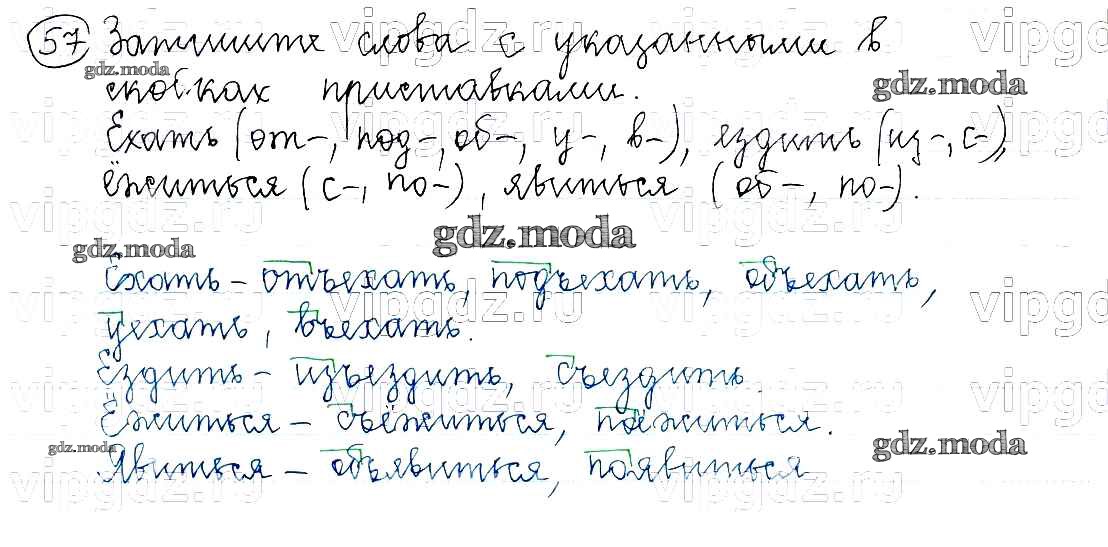 57 Запишите слова с указанными в
скобках приставками.
Ехать (от-, под-, об-, у-, в-), ездить (из-, с-),
ёжиться (с-, по-), явиться (об-, по-).
Ехать – отъехать, подъехать, объехать,
уехать, въехать.
Ездить – изъездить, съездить.
Ёжиться – съёжиться, поёжиться.
Явиться – объявиться, появиться
vipgdz.ru
gdz.moda